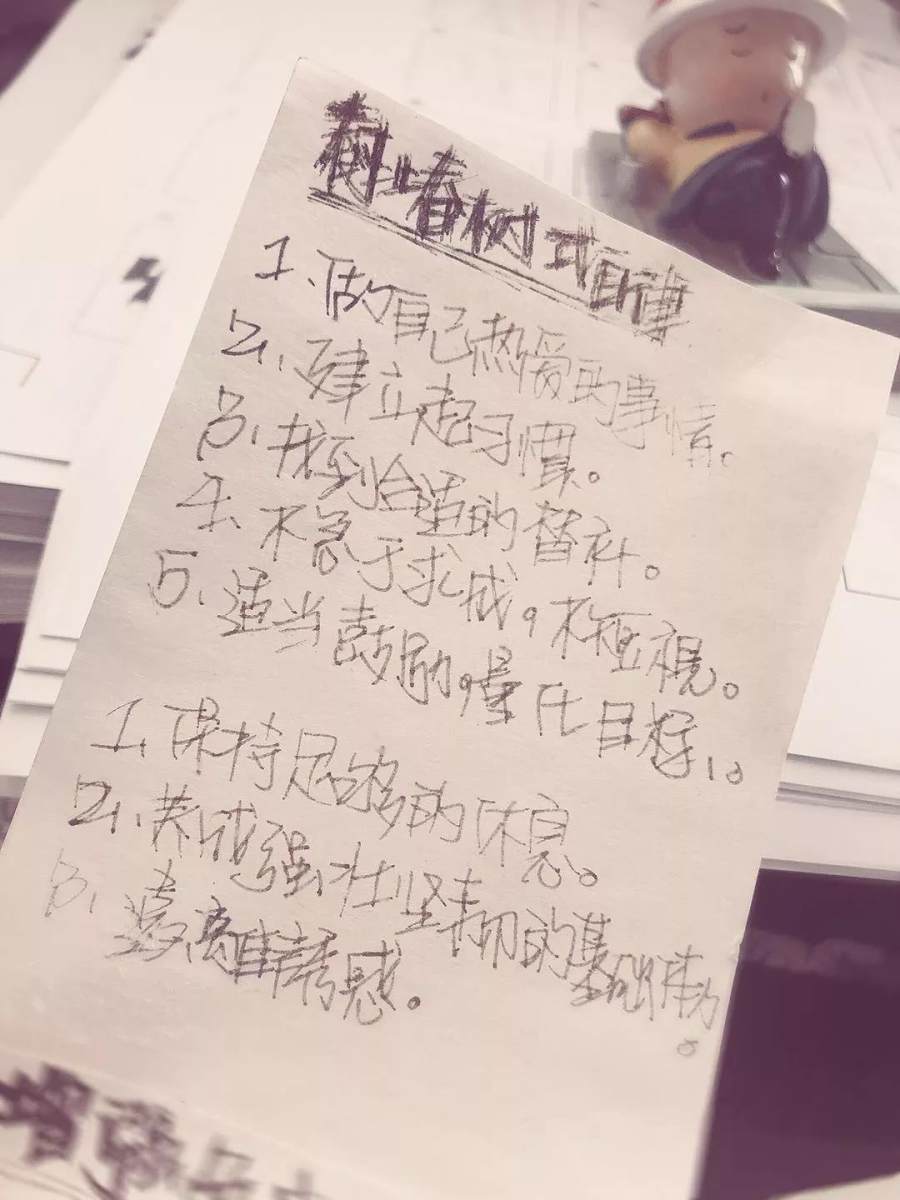 村上春树式自律
1、做自己热爱的事情。
2、建立起习惯。
3、找到合适的替补。
4、不急于求成。不短视。
5、适当鼓励。量化目标。
1、保持足够的休息。
2、养成强壮坚韧的基础体力。
3、远离诱惑。